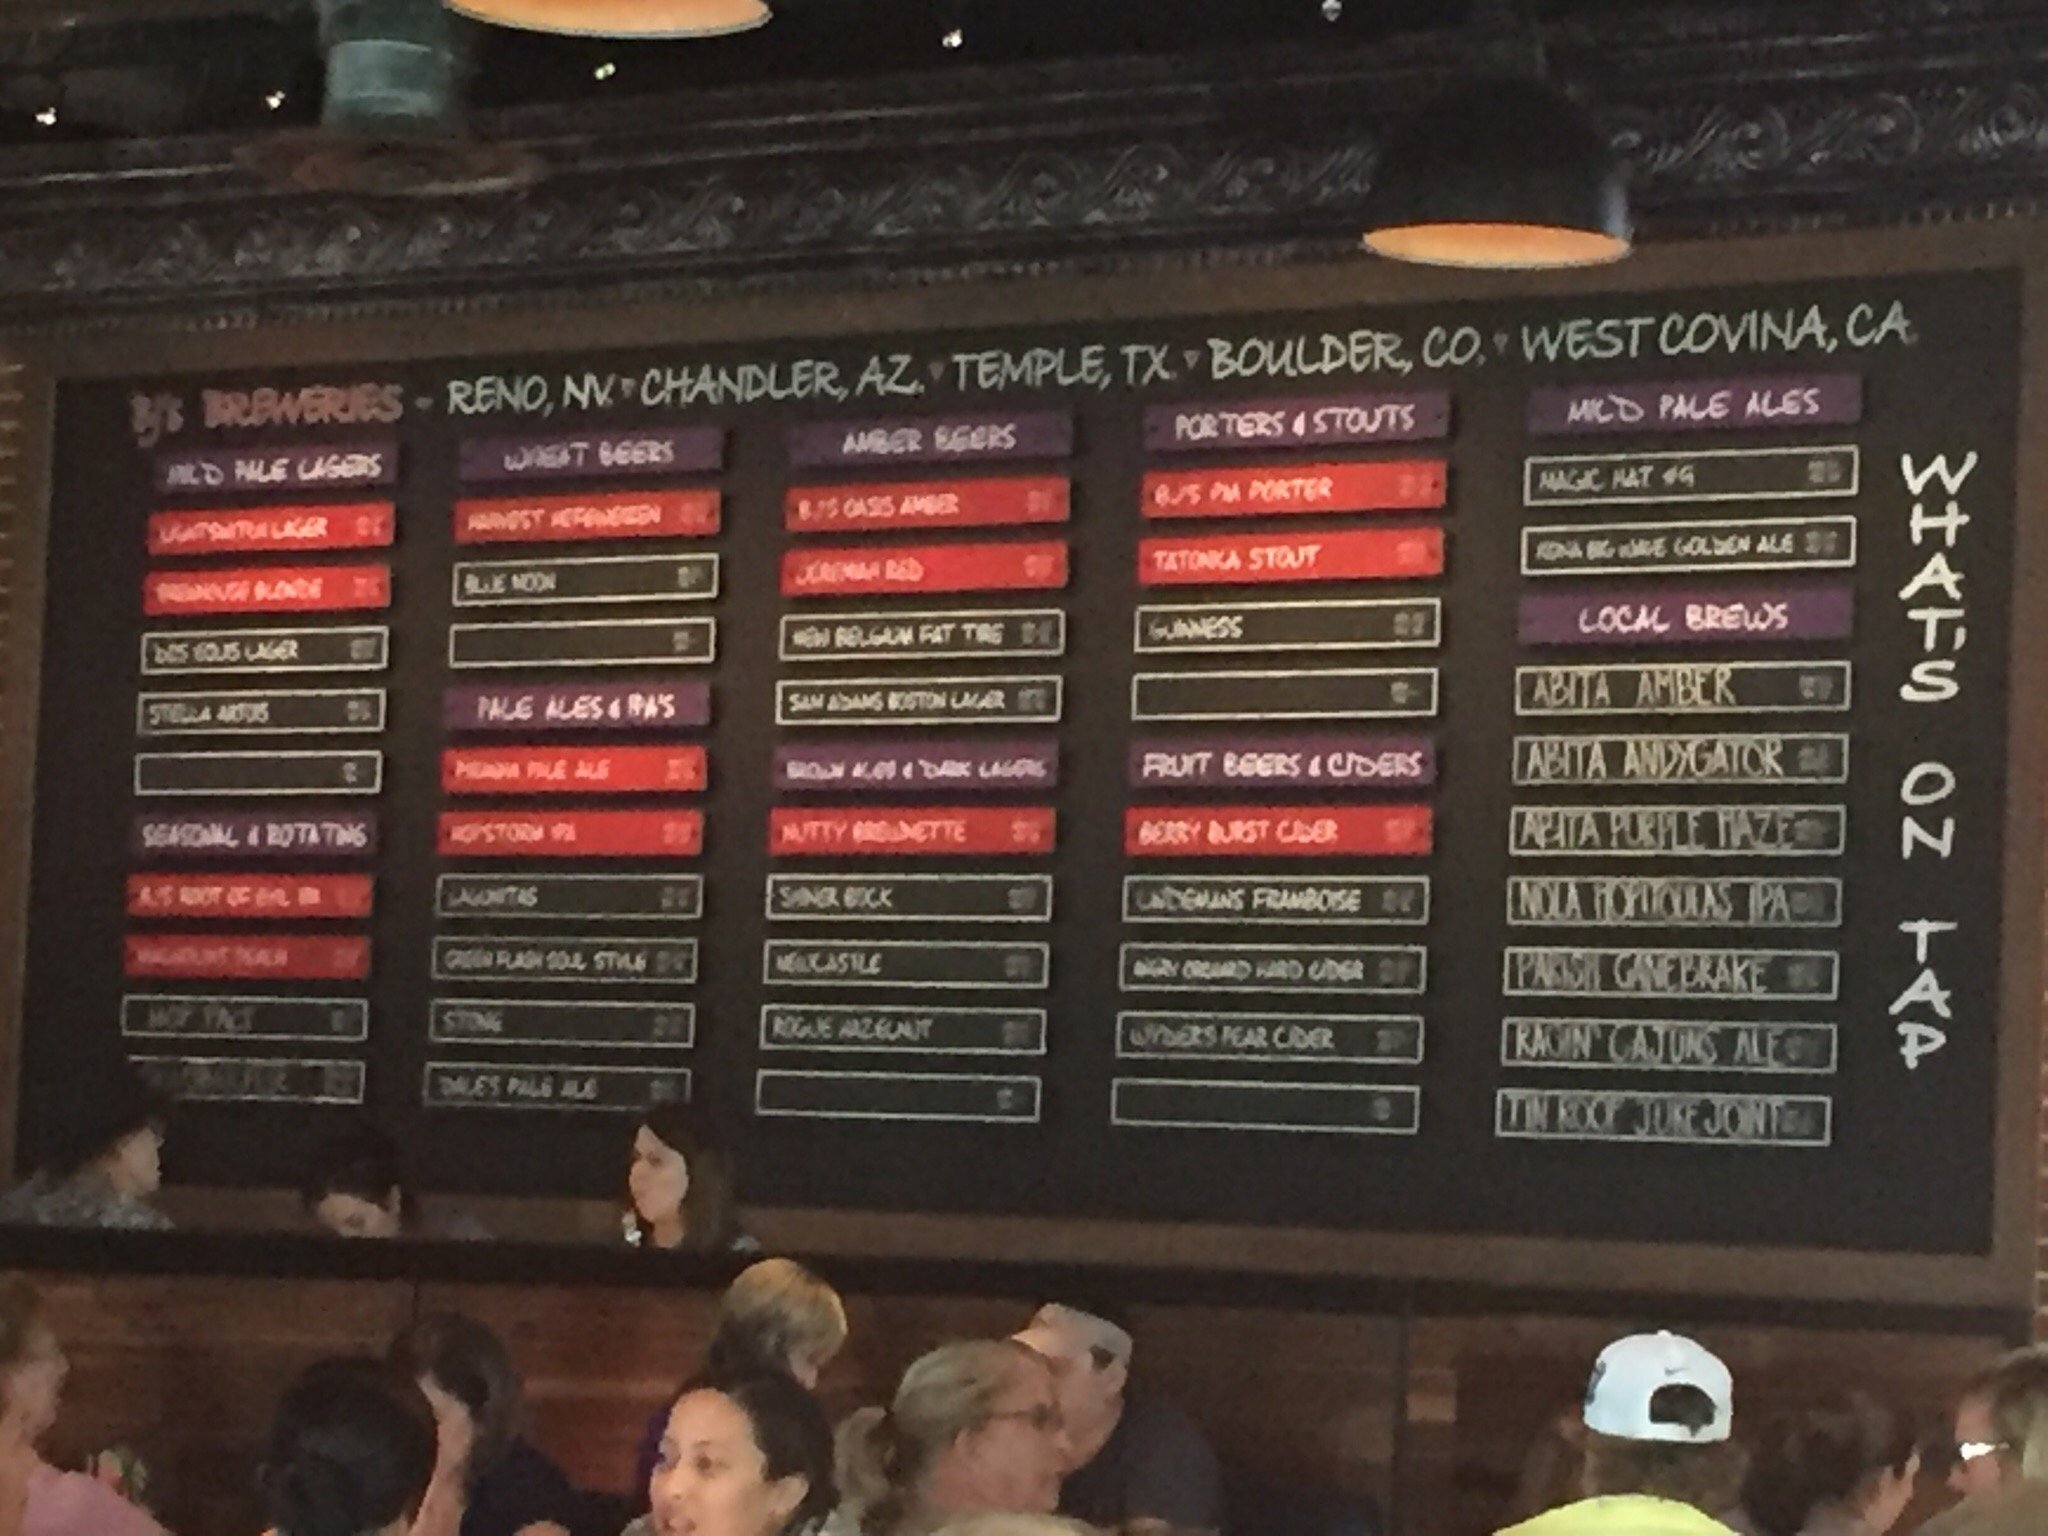 BJ's BREWERIES - RENO, NV. CHANDLER, AZ. TEMPLE, TX. BOULDER, CO. WEST COVINA, CA
MILD PALE LAGERS
LIGHTSWITCH LAGER
BREWHOUSE BLONDE
LAGER
STELLA ARTOIS
SEASONAL & ROTATING
BJ'S ROOT OF EVIL
WHEAT BEERS
HARVEST HEFEWEIZEN
BLUE MOON
PALE ALES & IPA'S
PIRANHA PALE ALE
HOPSTORM IPA
LAGUNITAS
GREEN FLASH SOUL STYLE
STONE
DALE'S PALE ALE
AMBER BEERS
BJ'S OASIS AMBER
JEREMIAH RED
NEW BELGIUM FAT TIRE
SAM ADAMS BOSTON LAGER
BROWN ALES & DARK LAGERS
NUTTY BREWNETTE
SHINER BOCK
NEWCASTLE
ROGUE HAZELNUT
PORTERS & STOUTS
BJ'S PM PORTER
TATONKA STOUT
GUINNESS
FRUIT BEERS & CIDERS
BERRY BURST CIDER
LINDEMANS FRAMBOISE
ANGRY ORCHARD HARD CIDER
WYDER'S PEAR CIDER
MILD PALE ALES
MAGIC HAT #9
KONA BIG WAVE GOLDEN ALE
LOCAL BREWS
ABITA AMBER
ABITA ANDYGATOR
ABITA PURPLE HAZE
NOLA HOPITOULAS IPA
PARISH CANEBRAKE
RAGIN' CAJUNS ALE
TIN ROOF JUKE JOINT
WHAT'S ON TAP